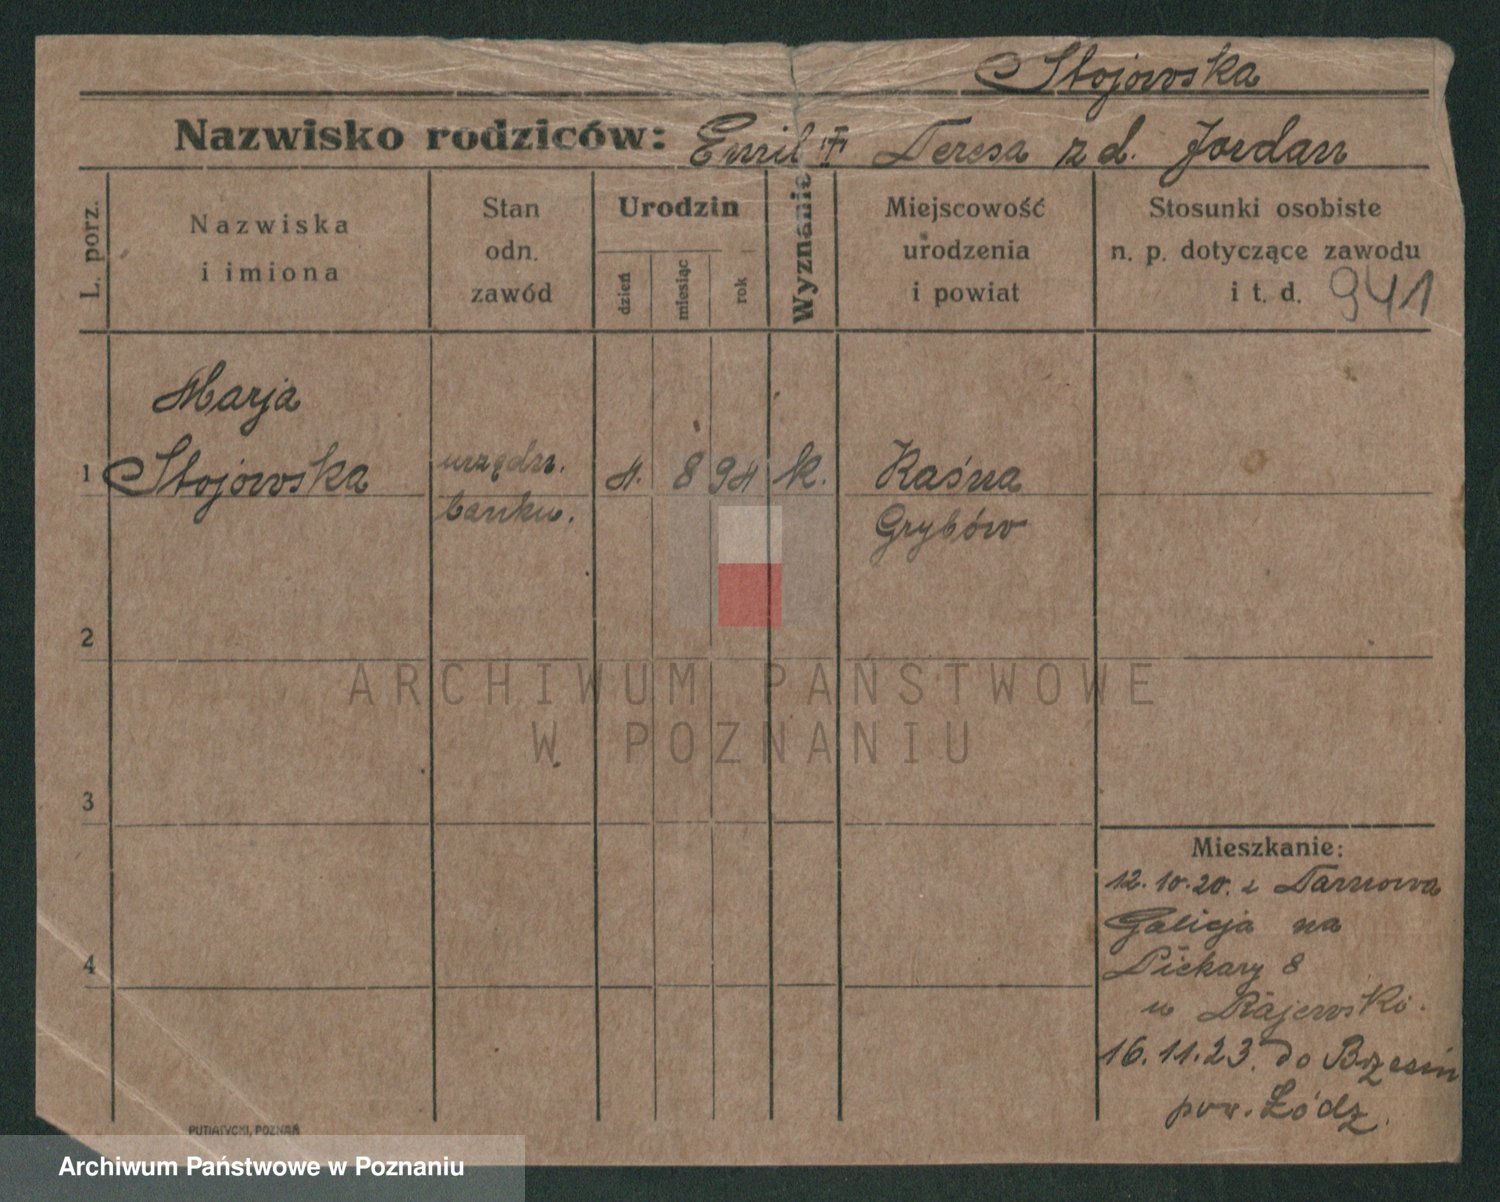 Stojowska
Nazwisko rodziców: Emil † Teresa z d. Jordan
L. porz.
Nazwiska
i imiona
Stan
odn.
zawód
Urodzin
dzień
miesiąc
rok
Wyznanie
Miejscowość
urodzenia
i powiat
Stosunki osobiste
n. p. dotyczące zawodu
i t. d. 941
Marja
1 Stojowska urzędn. 4. 8 94 k. Kaśna
banku. Grybów
2
3
4
Mieszkanie:
12.10.20. z Tarnowa
Galicja na
Piekary 8
u Rajewski.
16.11.23. do Brzezin
pow. Łódz.
PUTIATYCKI, POZNAŃ
ARCHIWUM PAŃSTWOWE
W POZNANIU
Archiwum Państwowe w Poznaniu